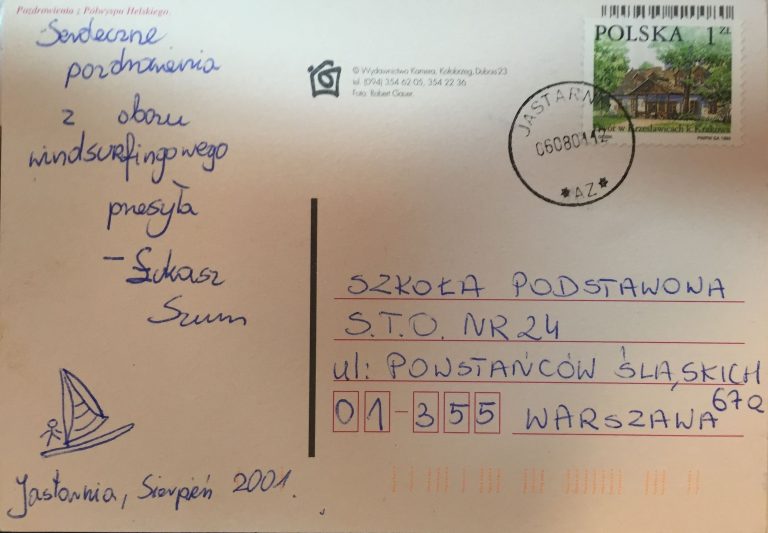 Pozdrowienia z Półwyspu Helskiego.
Serdeczne
pozdrowienia
z obozu
windsurfingowego
przesyła
- Łukasz
Szum
Jastarnia, Sierpień 2001.
© Wydawnictwo Kamera, Kołobrzeg, Dubois 23
tel. (094) 354 62 05, 354 22 36
Foto: Robert Gauer.
POLSKA 1 ZŁ
Dwór w Krzesławicach k. Krakowa
JASTARNIA
060801-12
*AZ*
SZKOŁA PODSTAWOWA
S.T.O. NR 24
ul: POWSTAŃCÓW ŚLĄSKICH
67a
01-355 WARSZAWA